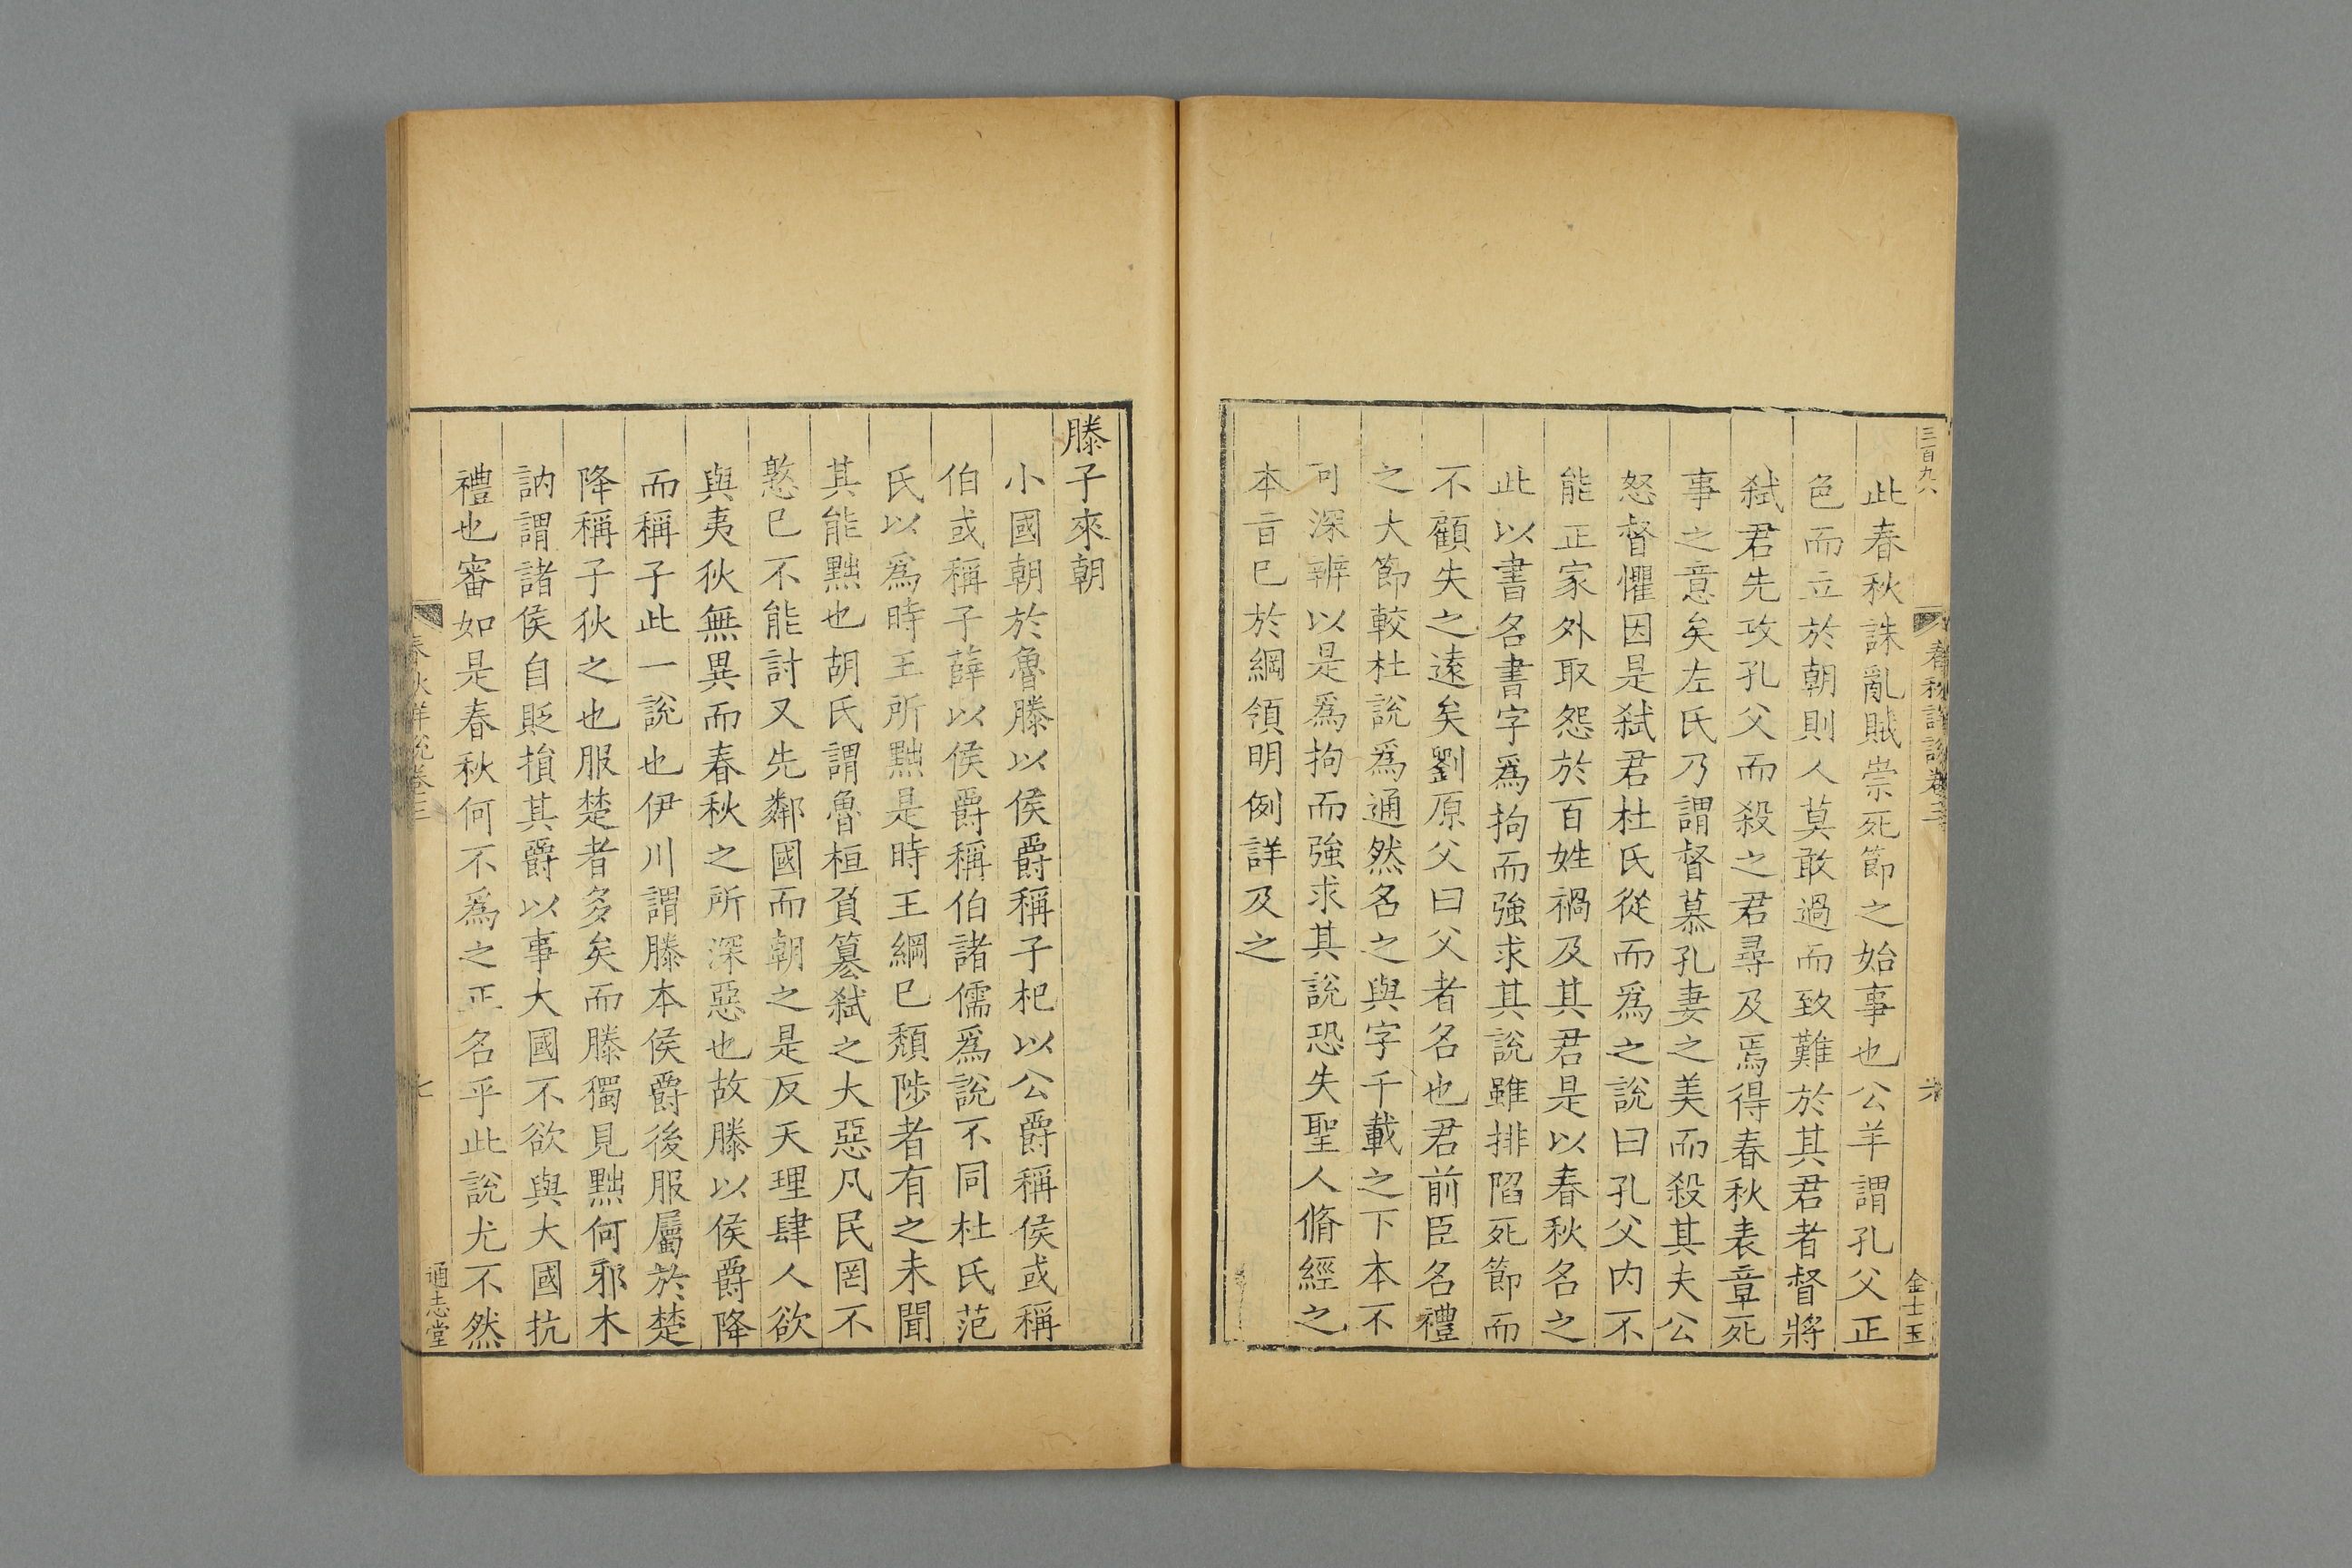 三百九六
春秋詳說卷三
六
金士玉
此春秋誅亂賊崇死節之始事也公羊謂孔父正
色而立於朝則人莫敢過而致難於其君者督將
弒君先攻孔父而殺之君尋及焉得春秋表章死
事之意矣左氏乃謂督慕孔妻之美而殺其夫公
怒督懼因是弒君杜氏從而為之說曰孔父內不
能正家外取怨於百姓禍及其君是以春秋名之
此以書名書字爲拘而強求其說雖排陷死節而
不顧失之遠矣劉原父曰父者名也君前臣名禮
之大節較杜說爲通然名之與字千載之下本不
可深辨以是爲拘而強求其說恐失聖人脩經之
本旨已於綱領明例詳及之
滕子來朝
小國朝於魯滕以侯爵稱子杞以公爵稱侯或稱
伯或稱子薛以侯爵稱伯諸儒爲說不同杜氏范
氏以爲時王所黜是時王綱已頹陟者有之未聞
其能黜也胡氏謂魯桓負簒弒之大惡凡民罔不
憝已不能討又先鄰國而朝之是反天理肆人欲
與夷狄無異而春秋之所深惡也故滕以侯爵降
而稱子此一說也伊川謂滕本侯爵後服屬於楚
降稱子狄之也服楚者多矣而滕獨見黜何邪木
訥謂諸侯自貶損其爵以事大國不欲與大國抗
禮也審如是春秋何不爲之正名乎此說尤不然
春秋詳說卷三
七
通志堂